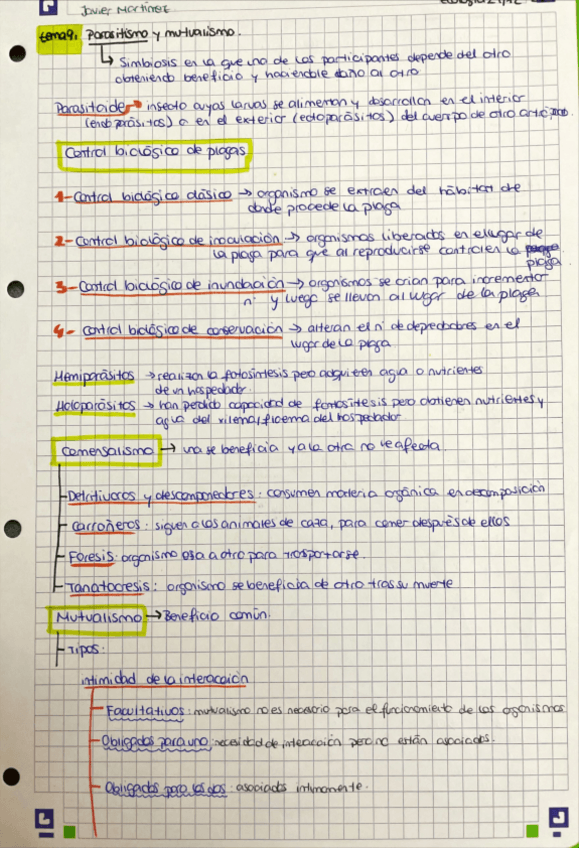 Javier Martínez
tema 9. Parasitismo y mutualismo.
↳ Simbiosis en la que uno de los participantes depende del otro
obteniendo beneficio y haciendole daño al otro
Parasitoide → insecto cuyas larvas se alimentan y desarrollan en el interior
(endoparásitos) o en el exterior (ectoparásitos) del cuerpo de otro artrópodo.
Control biológico de plagas
1- Control biológico clásico → organismo se extraen del hábitat de
donde procede la plaga
2- Control biológico de inoculación → organismos liberados en el lugar de
la plaga para que al reproducirse controlen la
plaga
3- Control biológico de inundación → organismos se crian para incrementar
nº y luego se llevan al lugar de la plaga
4- Control biológico de conservación → alteran el nº de depredadores en el
lugar de la plaga
Hemiparásitos → realizan la fotosintesis pero adquieren agua o nutrientes
de un hospedador
Holoparásitos → han perdido capacidad de fotosíntesis pero obtienen nutrientes y
agua del xilema/floema del hospedador
Comensalismo → una se beneficia y a la otra no le afecta.
Detritivoros y descomponedores: consumen materia orgánica en descomposición
Carroñeros: siguen a los animales de caza, para comer después de ellos
Foresis: organismo usa a otro para trasportarse.
Tanatocresis: organismo se beneficia de otro tras su muerte
Mutualismo → Beneficio común.
Tipos:
intimidad de la interacción
Facultativos: mutualismo no es necesario para el funcionamiento de los organismos
Obligados para uno: necesidad de interacción pero no están asociados.
Obligados para los dos: asociados intimamente.